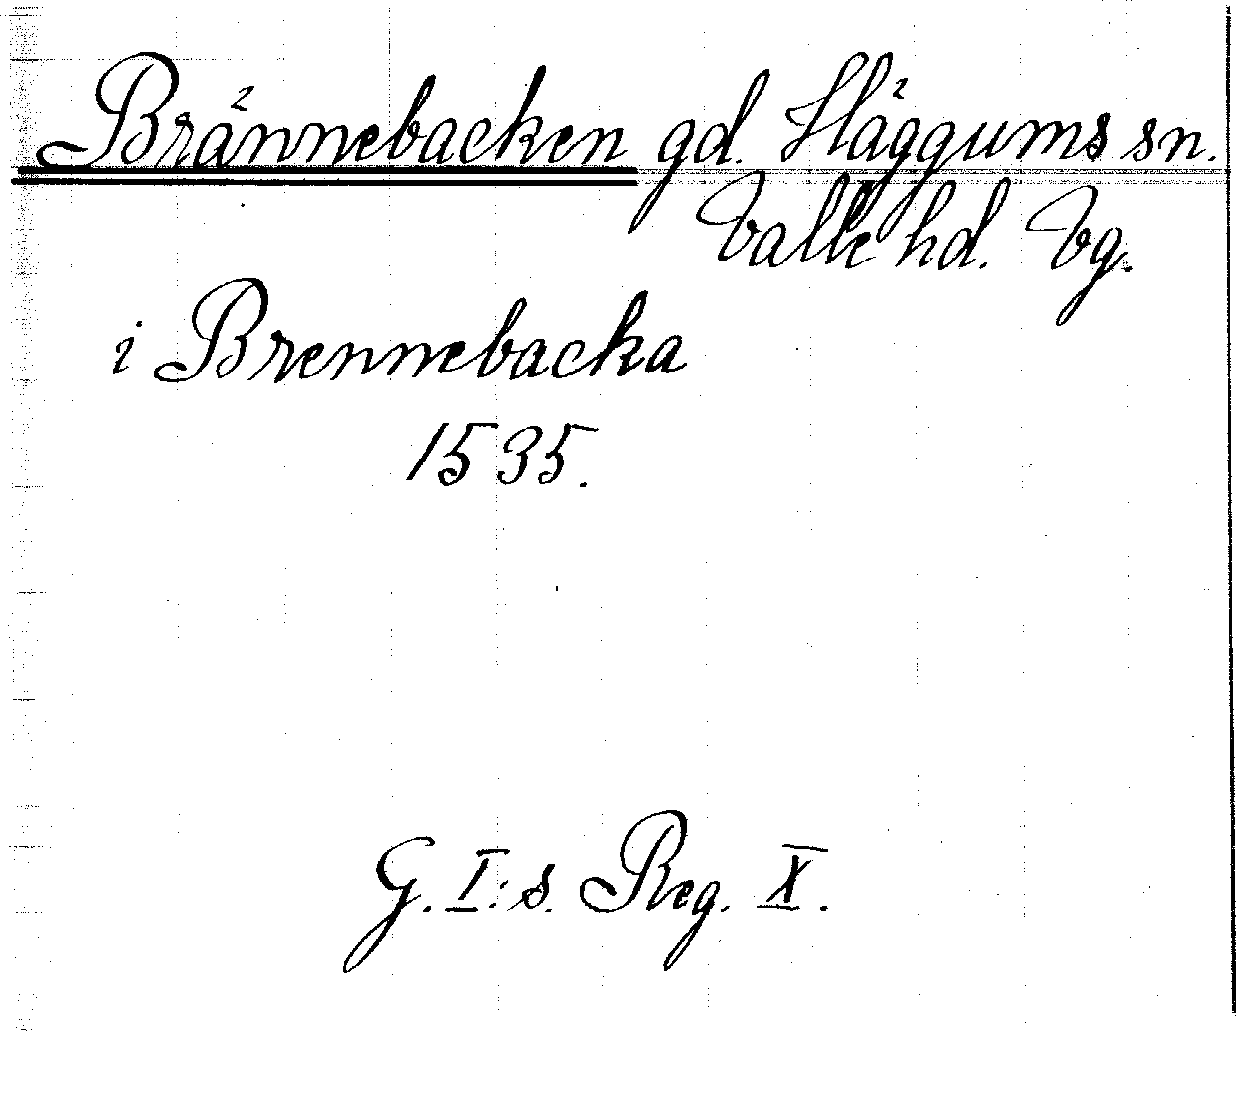 Brännebacken gd. Häggums sn.
Valle hd. Vg.
i Brennebacka
1535.
G. I:s. Reg. X.